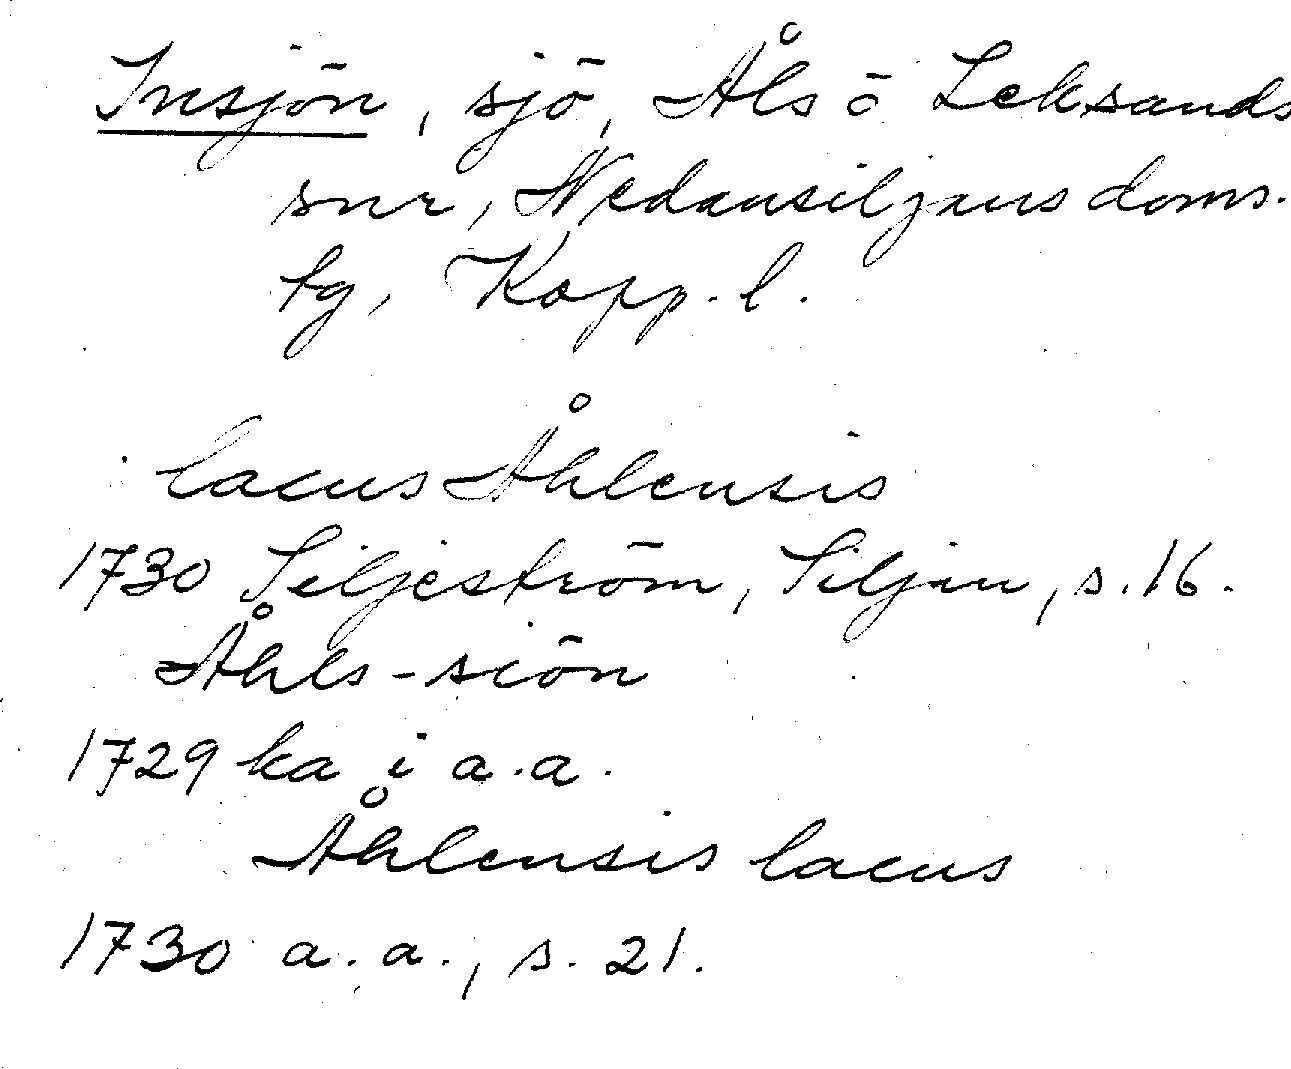 Insjön, sjö, Åls o Leksands
snr, Nedansiljans doms.
tg, Kopp. l.
lacus Åhlensis
1730 Siljeström, Siljan, s. 16.
Åhls-siön
1729 ka i a.a.
Åhlensis lacus
1730 a.a., s. 21.